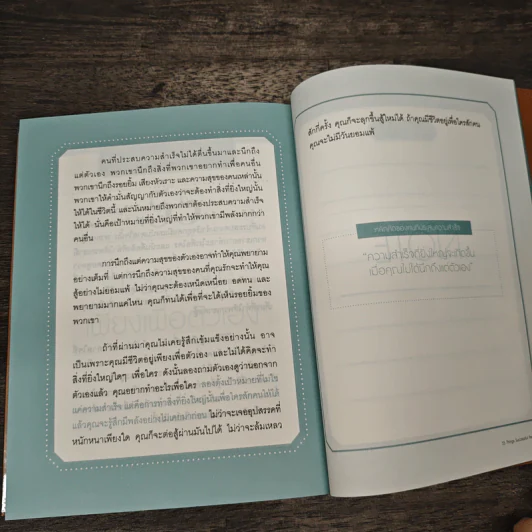 คนที่ประสบความสำเร็จไม่ได้ตื่นขึ้นมาและนึกถึง
แต่ตัวเอง พวกเขานึกถึงสิ่งที่พวกเขาอยากทำเพื่อคนอื่น
พวกเขานึกถึงรอยยิ้ม เสียงหัวเราะ และความสุขของคนเหล่านั้น
พวกเขาให้คำมั่นสัญญากับตัวเองว่าจะต้องทำสิ่งที่ยิ่งใหญ่นั้น
ให้ได้ในชีวิตนี้ และนั่นหมายถึงพวกเขาต้องประสบความสำเร็จ
ให้ได้ นั่นคือเป้าหมายที่ยิ่งใหญ่ที่ทำให้พวกเขามีพลังมากกว่า
คนอื่น
การนึกถึงแต่ความสุขของตัวเองอาจทำให้คุณพยายาม
อย่างเต็มที่ แต่การนึกถึงความสุขของคนที่คุณรักจะทำให้คุณ
สู้อย่างไม่ยอมแพ้ ไม่ว่าคุณจะต้องเหน็ดเหนื่อย อดทน และ
พยายามมากแค่ไหน คุณก็ทนได้เพื่อที่จะได้เห็นรอยยิ้มของ
พวกเขา
ถ้าที่ผ่านมาคุณไม่เคยรู้สึกเข้มแข็งอย่างนั้น อาจ
เป็นเพราะคุณมีชีวิตอยู่เพียงเพื่อตัวเอง และไม่ได้คิดจะทำ
สิ่งที่ยิ่งใหญ่ใดๆ เพื่อใคร ดังนั้นลองถามตัวเองดูว่านอกจาก
ตัวเองแล้ว คุณอยากทำอะไรเพื่อใคร ลองตั้งเป้าหมายที่ไม่ใช่
แค่ความสำเร็จ แต่คือการทำสิ่งที่ยิ่งใหญ่นั้นเพื่อใครสักคนให้ได้
แล้วคุณจะรู้สึกมีพลังอย่างไม่เคยมาก่อน ไม่ว่าจะเจออุปสรรคที่
หนักหนาเพียงใด คุณก็จะต่อสู้ผ่านมันไปได้ ไม่ว่าจะล้มเหลว
สักกี่ครั้ง คุณก็จะลุกขึ้นสู้ใหม่ได้ ถ้าคุณมีชีวิตอยู่เพื่อใครสักคน
คุณจะไม่มีวันยอมแพ้
"ความสำเร็จที่ยิ่งใหญ่จะเกิดขึ้น
เมื่อคุณไม่ได้นึกถึงแต่ตัวเอง"